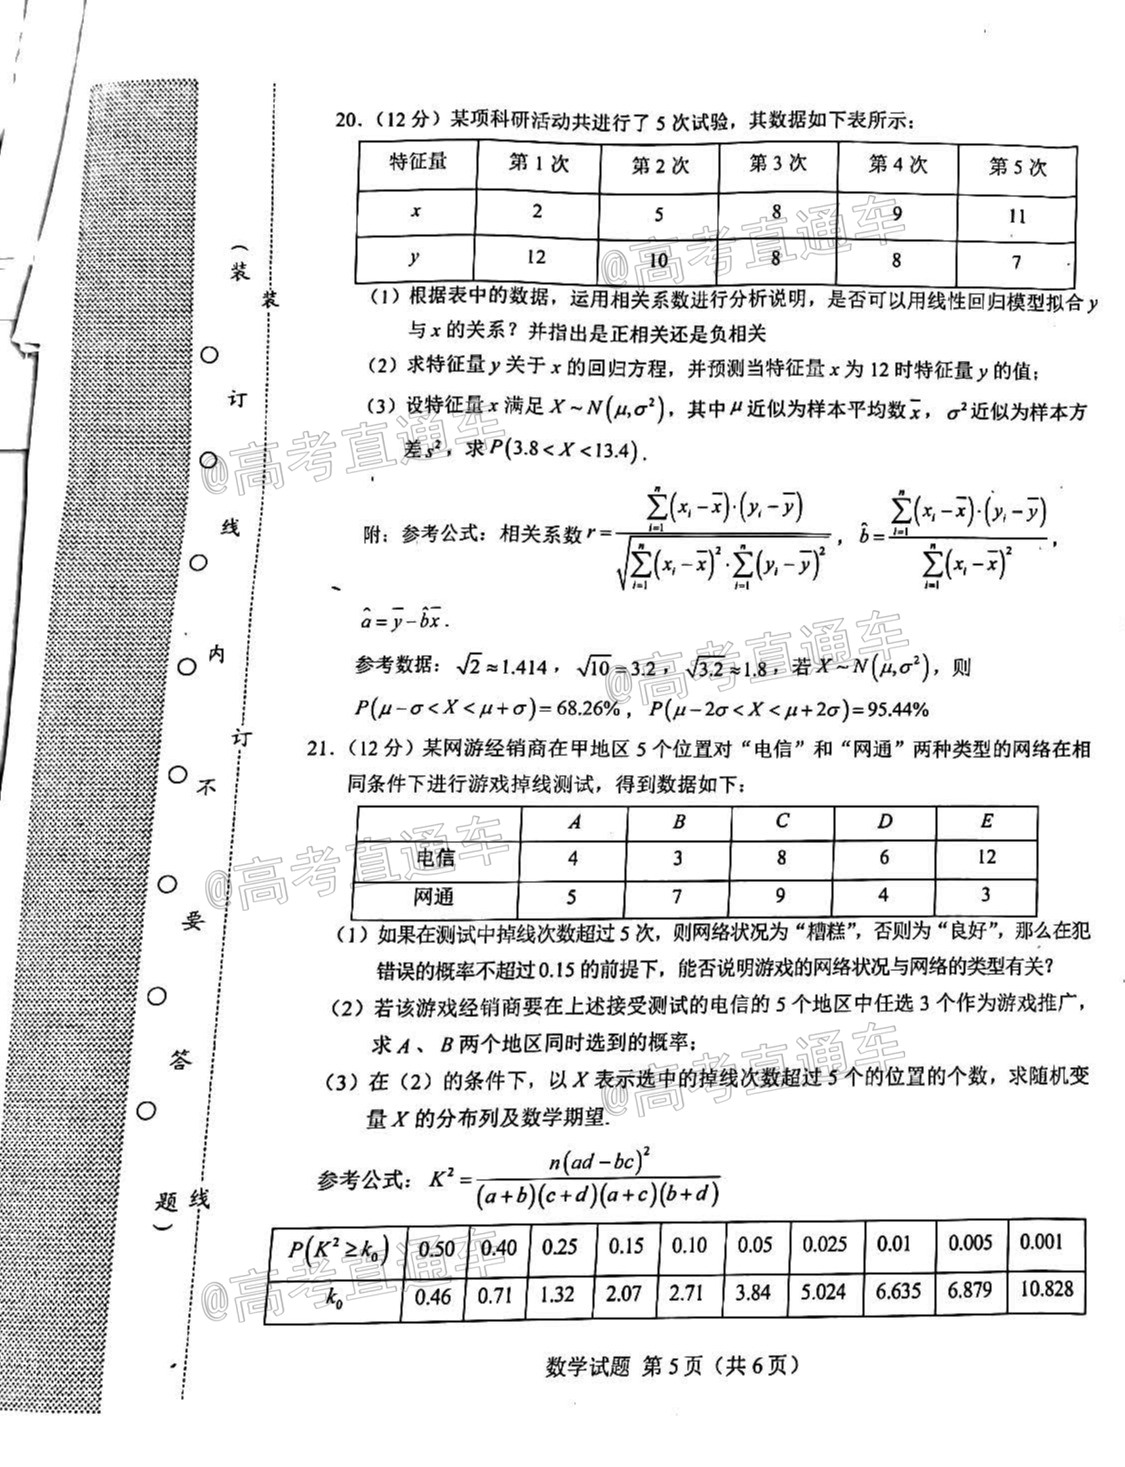 20.（12 分）某项科研活动共进行了 5 次试验，其数据如下表所示：
特征量 第 1 次 第 2 次 第 3 次 第 4 次 第 5 次
x 2 5 8 9 11
y 12 10 8 8 7
（1）根据表中的数据，运用相关系数进行分析说明，是否可以用线性回归模型拟合 y
与 x 的关系？并指出是正相关还是负相关
（2）求特征量 y 关于 x 的回归方程，并预测当特征量 x 为 12 时特征量 y 的值；
（3）设特征量 x 满足 X～N(μ,σ²)，其中 μ 近似为样本平均数 x̄，σ² 近似为样本方
差 s²，求 P(3.8<X<13.4).
附：参考公式：相关系数 r=∑ᵢ₌₁ⁿ(xᵢ-x̄)·(yᵢ-ȳ)/√(∑ᵢ₌₁ⁿ(xᵢ-x̄)²·∑ᵢ₌₁ⁿ(yᵢ-ȳ)²)，b̂=∑ᵢ₌₁ⁿ(xᵢ-x̄)·(yᵢ-ȳ)/∑ᵢ₌₁ⁿ(xᵢ-x̄)²，
â=ȳ-b̂x̄.
参考数据：√2≈1.414，√10=3.2，√3.2≈1.8，若 X～N(μ,σ²)，则
P(μ-σ<X<μ+σ)=68.26%，P(μ-2σ<X<μ+2σ)=95.44%
21.（12 分）某网游经销商在甲地区 5 个位置对“电信”和“网通”两种类型的网络在相
同条件下进行游戏掉线测试，得到数据如下：
A B C D E
电信 4 3 8 6 12
网通 5 7 9 4 3
（1）如果在测试中掉线次数超过 5 次，则网络状况为“糟糕”，否则为“良好”，那么在犯
错误的概率不超过 0.15 的前提下，能否说明游戏的网络状况与网络的类型有关？
（2）若该游戏经销商要在上述接受测试的电信的 5 个地区中任选 3 个作为游戏推广，
求 A、B 两个地区同时选到的概率；
（3）在（2）的条件下，以 X 表示选中的掉线次数超过 5 个的位置的个数，求随机变
量 X 的分布列及数学期望.
参考公式：K²=n(ad-bc)²/(a+b)(c+d)(a+c)(b+d)
P(K²≥k₀) 0.50 0.40 0.25 0.15 0.10 0.05 0.025 0.01 0.005 0.001
k₀ 0.46 0.71 1.32 2.07 2.71 3.84 5.024 6.635 6.879 10.828
数学试题 第 5 页（共 6 页）
（装订线内不要答题）
装订线
@高考直通车
@高考直通车
@高考直通车
@高考直通车
@高考直通车
@高考直通车